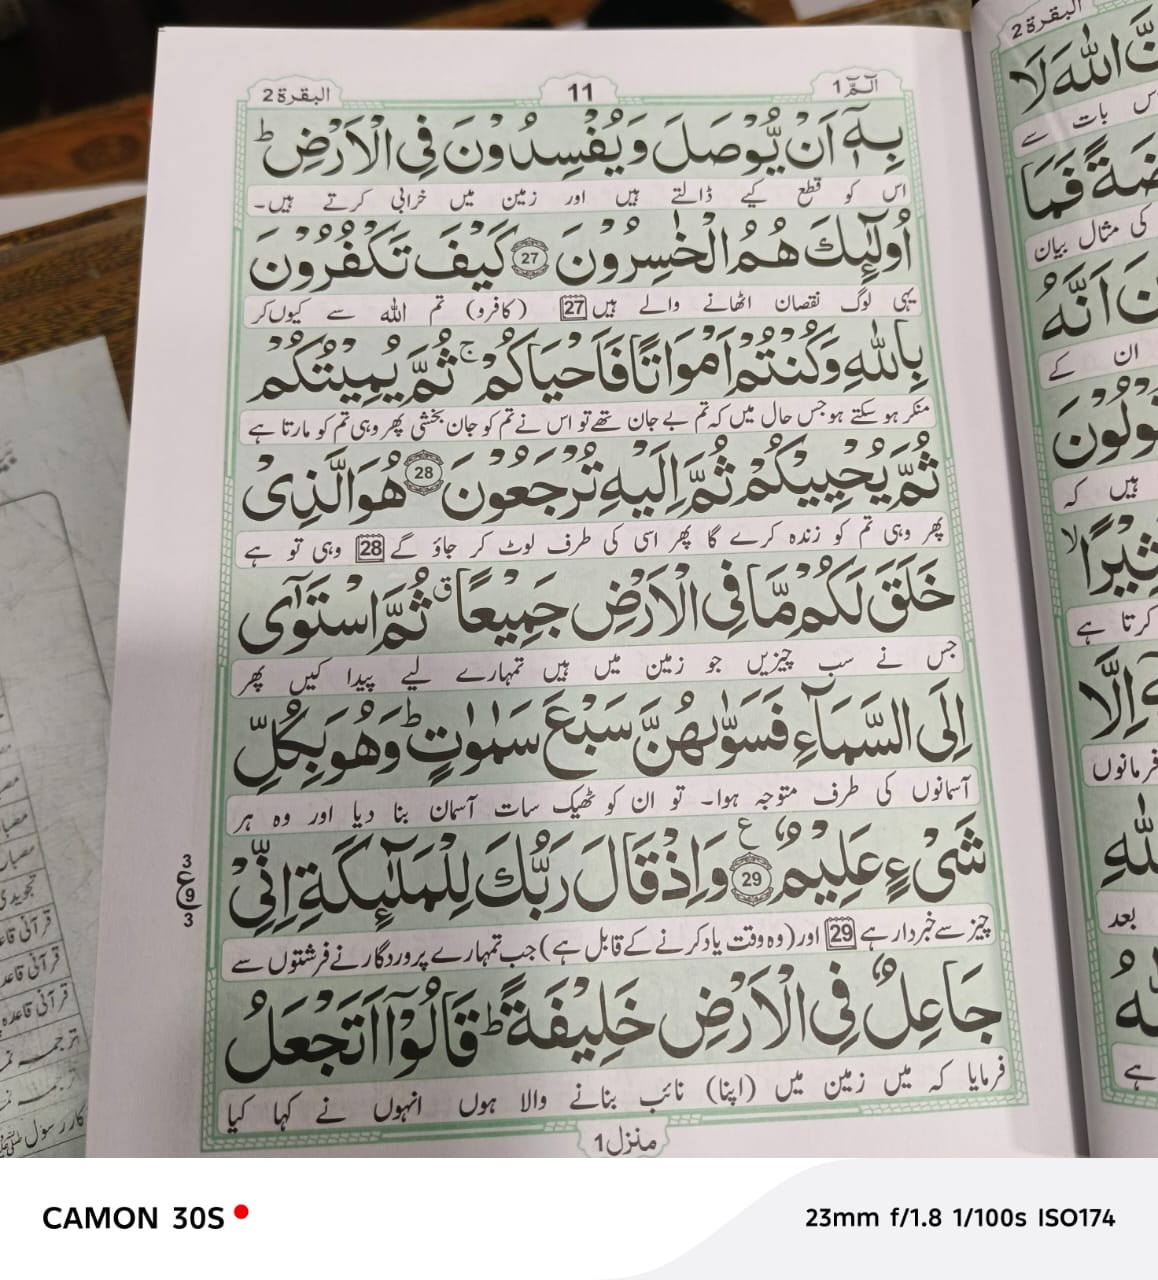 الٓمّٓ 1
11
البقرة 2
بِهٖۤ اَنْ یُّوْصَلَ وَ یُفْسِدُوْنَ فِی الْاَرْضِ ؕ
اس کو قطع کیے ڈالتے ہیں اور زمین میں خرابی کرتے ہیں۔
اُولٰٓىِٕكَ هُمُ الْخٰسِرُوْنَ 27 كَیْفَ تَكْفُرُوْنَ
یہی لوگ نقصان اٹھانے والے ہیں 27 (کافرو) تم اللہ سے کیوں کر
بِاللّٰهِ وَ كُنْتُمْ اَمْوَاتًا فَاَحْیَاكُمْ ۚ ثُمَّ یُمِیْتُكُمْ
منکر ہو سکتے ہو جس حال میں کہ تم بے جان تھے تو اس نے تم کو جان بخشی پھر وہی تم کو مارتا ہے
ثُمَّ یُحْیِیْكُمْ ثُمَّ اِلَیْهِ تُرْجَعُوْنَ 28 هُوَ الَّذِیْ
پھر وہی تم کو زندہ کرے گا پھر اسی کی طرف لوٹ کر جاؤ گے 28 وہی تو ہے
خَلَقَ لَكُمْ مَّا فِی الْاَرْضِ جَمِیْعًا ۗ ثُمَّ اسْتَوٰۤی
جس نے سب چیزیں جو زمین میں ہیں تمہارے لیے پیدا کیں پھر
اِلَی السَّمَآءِ فَسَوّٰىهُنَّ سَبْعَ سَمٰوٰتٍ ؕ وَ هُوَ بِكُلِّ
آسمانوں کی طرف متوجہ ہوا۔ تو ان کو ٹھیک سات آسمان بنا دیا اور وہ ہر
شَیْءٍ عَلِیْمٌ 29 ع وَ اِذْ قَالَ رَبُّكَ لِلْمَلٰٓىِٕكَةِ اِنِّیْ
3 ع 9 3
چیز سے خبردار ہے 29 اور (وہ وقت یاد کرنے کے قابل ہے) جب تمہارے پروردگار نے فرشتوں سے
جَاعِلٌ فِی الْاَرْضِ خَلِیْفَةً ؕ قَالُوْۤا اَتَجْعَلُ
فرمایا کہ میں زمین میں (اپنا) نائب بنانے والا ہوں انہوں نے کہا کیا
منزل 1
البقرة 2
نَّ اللّٰهَ لَا
اس بات سے
ضَةً فَمَا
کی مثال بیان
نَ اَنَّهُ
ان کے
وْلُوْنَ
ہیں کہ
ثِیْرًا ۙ
کرتا ہے
هٖۤ اِلَّا
فرمانوں
للّٰهِ
بعد
ہے
تجویدی
قرآنی قاعد
قرآنی قاعد
قرآنی قاعدہ
ترجمہ
CAMON 30S
23mm f/1.8 1/100s ISO174